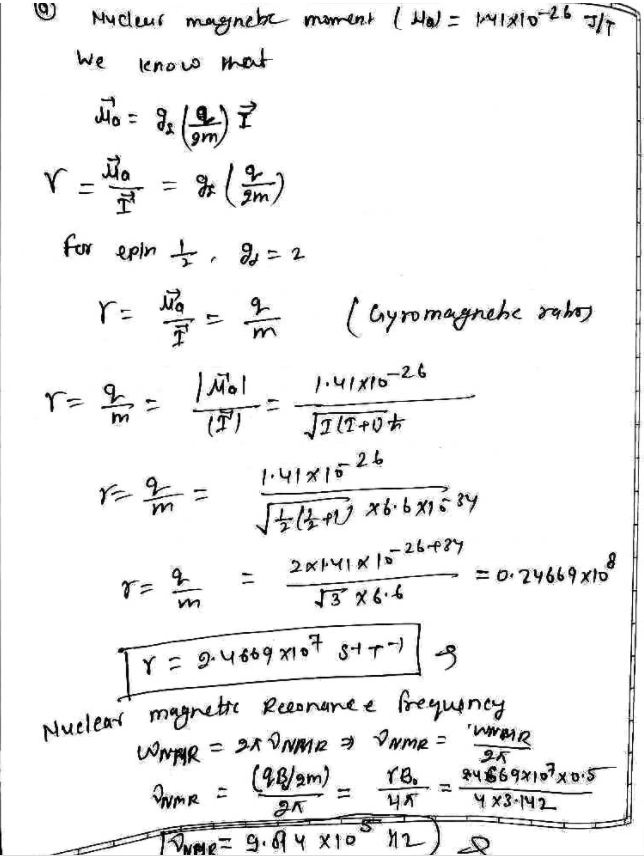 (a) Nuclear magnetic moment (μ₀) = 1.41×10⁻²⁶ J/T
We know that
μ⃗₀ = g_s (q/2m) I⃗
γ = μ⃗₀/I⃗ = g_s (q/2m)
for spin 1/2, g_s = 2
γ = μ⃗₀/I⃗ = q/m (Gyromagnetic ratio)
γ = q/m = |μ⃗₀|/(I⃗) = 1.41×10⁻²⁶/√I(I+1) ħ
γ = q/m = 1.41×10⁻²⁶/√½(½+1) ×6.6×10⁻³⁴
γ = q/m = 2×1.41×10⁻²⁶⁺³⁴/√3 ×6.6 = 0.24669×10⁸
γ = 2.4669×10⁷ s⁻¹T⁻¹
Nuclear magnetic Resonance frequency
ω_NMR = 2πν_NMR ⇒ ν_NMR = ω_NMR/2π
ν_NMR = (qB/2m)/2π = γB₀/4π = 2.4669×10⁷×0.5/4×3.142
ν_NMR = 9.84×10⁵ Hz